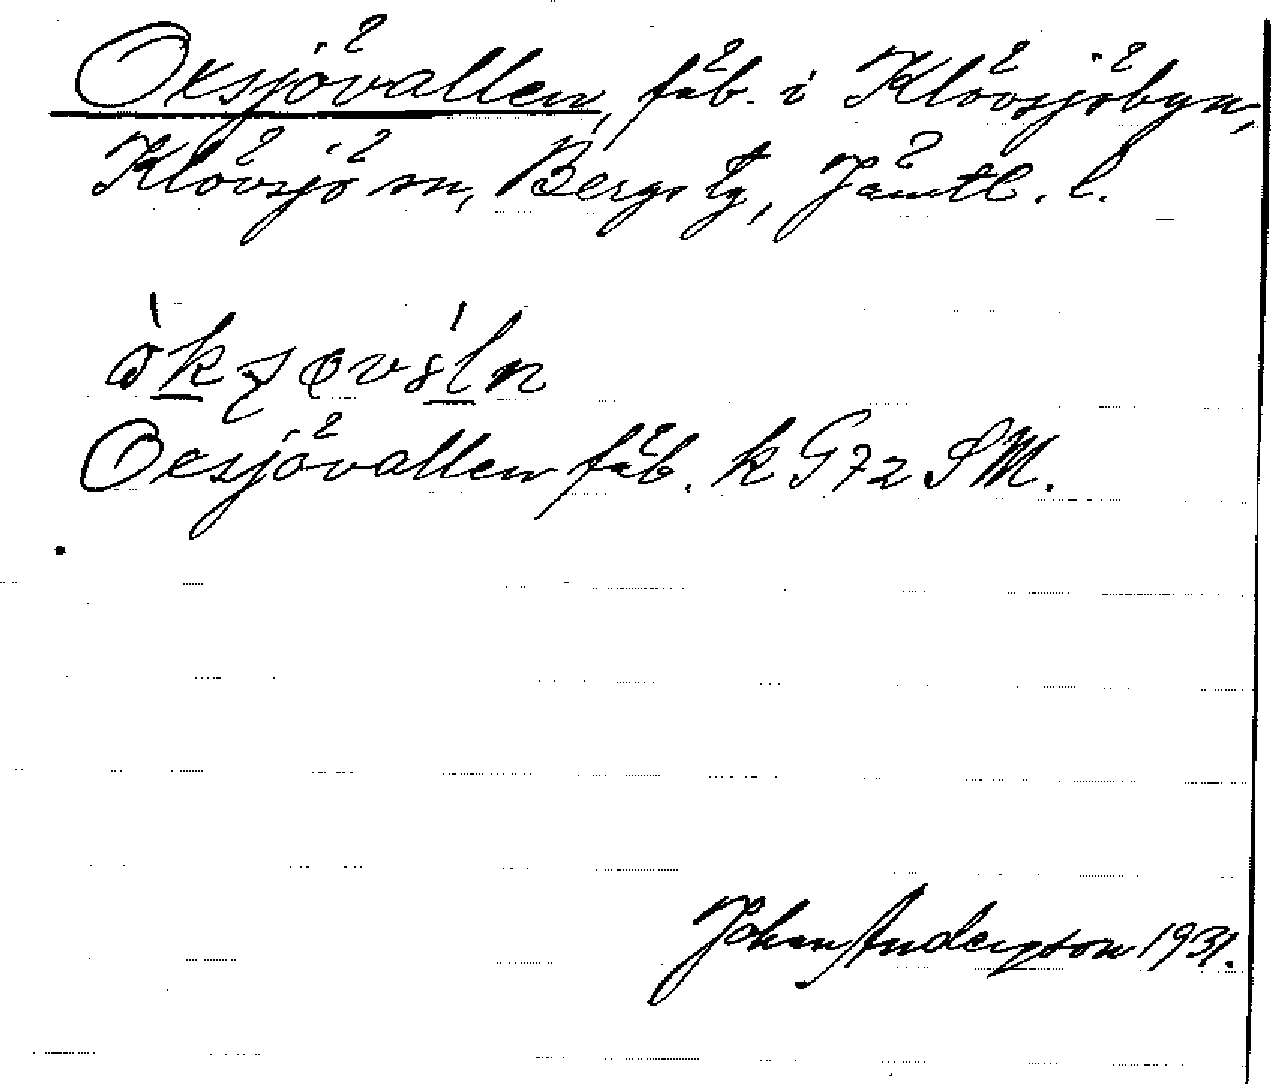 Oxsjövallen, fäb. i Klövsjöbyn,
Klövsjö sn, Bergs tg, Jämtl. l.
Oxsjövallen fäb. k G72 SM.
Johan Anderzson 1931.